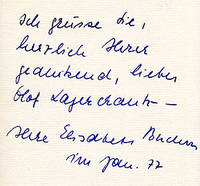 Ich grüsse Sie,
herzlich Ihrer
gedenkend, lieber
Olof Lagercrantz –
Ihre Elisabeth
im Jan. 77